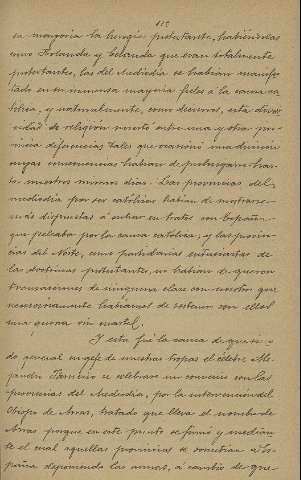 112
en mayoría la liturgia protestante, habiéndolas
como Holanda y Zelanda que eran totalmente
protestantes, las del Mediodía se habían manifes
tado en su inmensa mayoría fieles a la causa ca
tólica, y naturalmente, como decimos, esta diver
sidad de religión puesto entre una y otra pro
vincia diferencias tales que ocasionó una división
cuyas consecuencias habían de prolongarse has
ta nuestros mismos días. Las provincias del
mediodía por ser católicas habían de mostrarse
más dispuestas á entrar en tratos con España
que peleaba por la causa católica, y las provin
cias del Norte, como partidarias entusiastas de
las doctrinas protestantes, no habían de querer
transacciones de ninguna clase con nosotros que
necesariamente habíamos de sostener con ellas
una guerra sin cuartel.
Y esta fué la causa de que sien
do general en gefe de nuestras tropas el célebre Ale
jandro Farnesio se celebrase un convenio con las
provincias del Mediodía, por la intervención del
Obispo de Arras, tratado que lleva el nombre de
Arras porque en este punto se firmó y median
te el cual aquellas provincias se sometían a Es
paña deponiendo las armas, á cambio de que